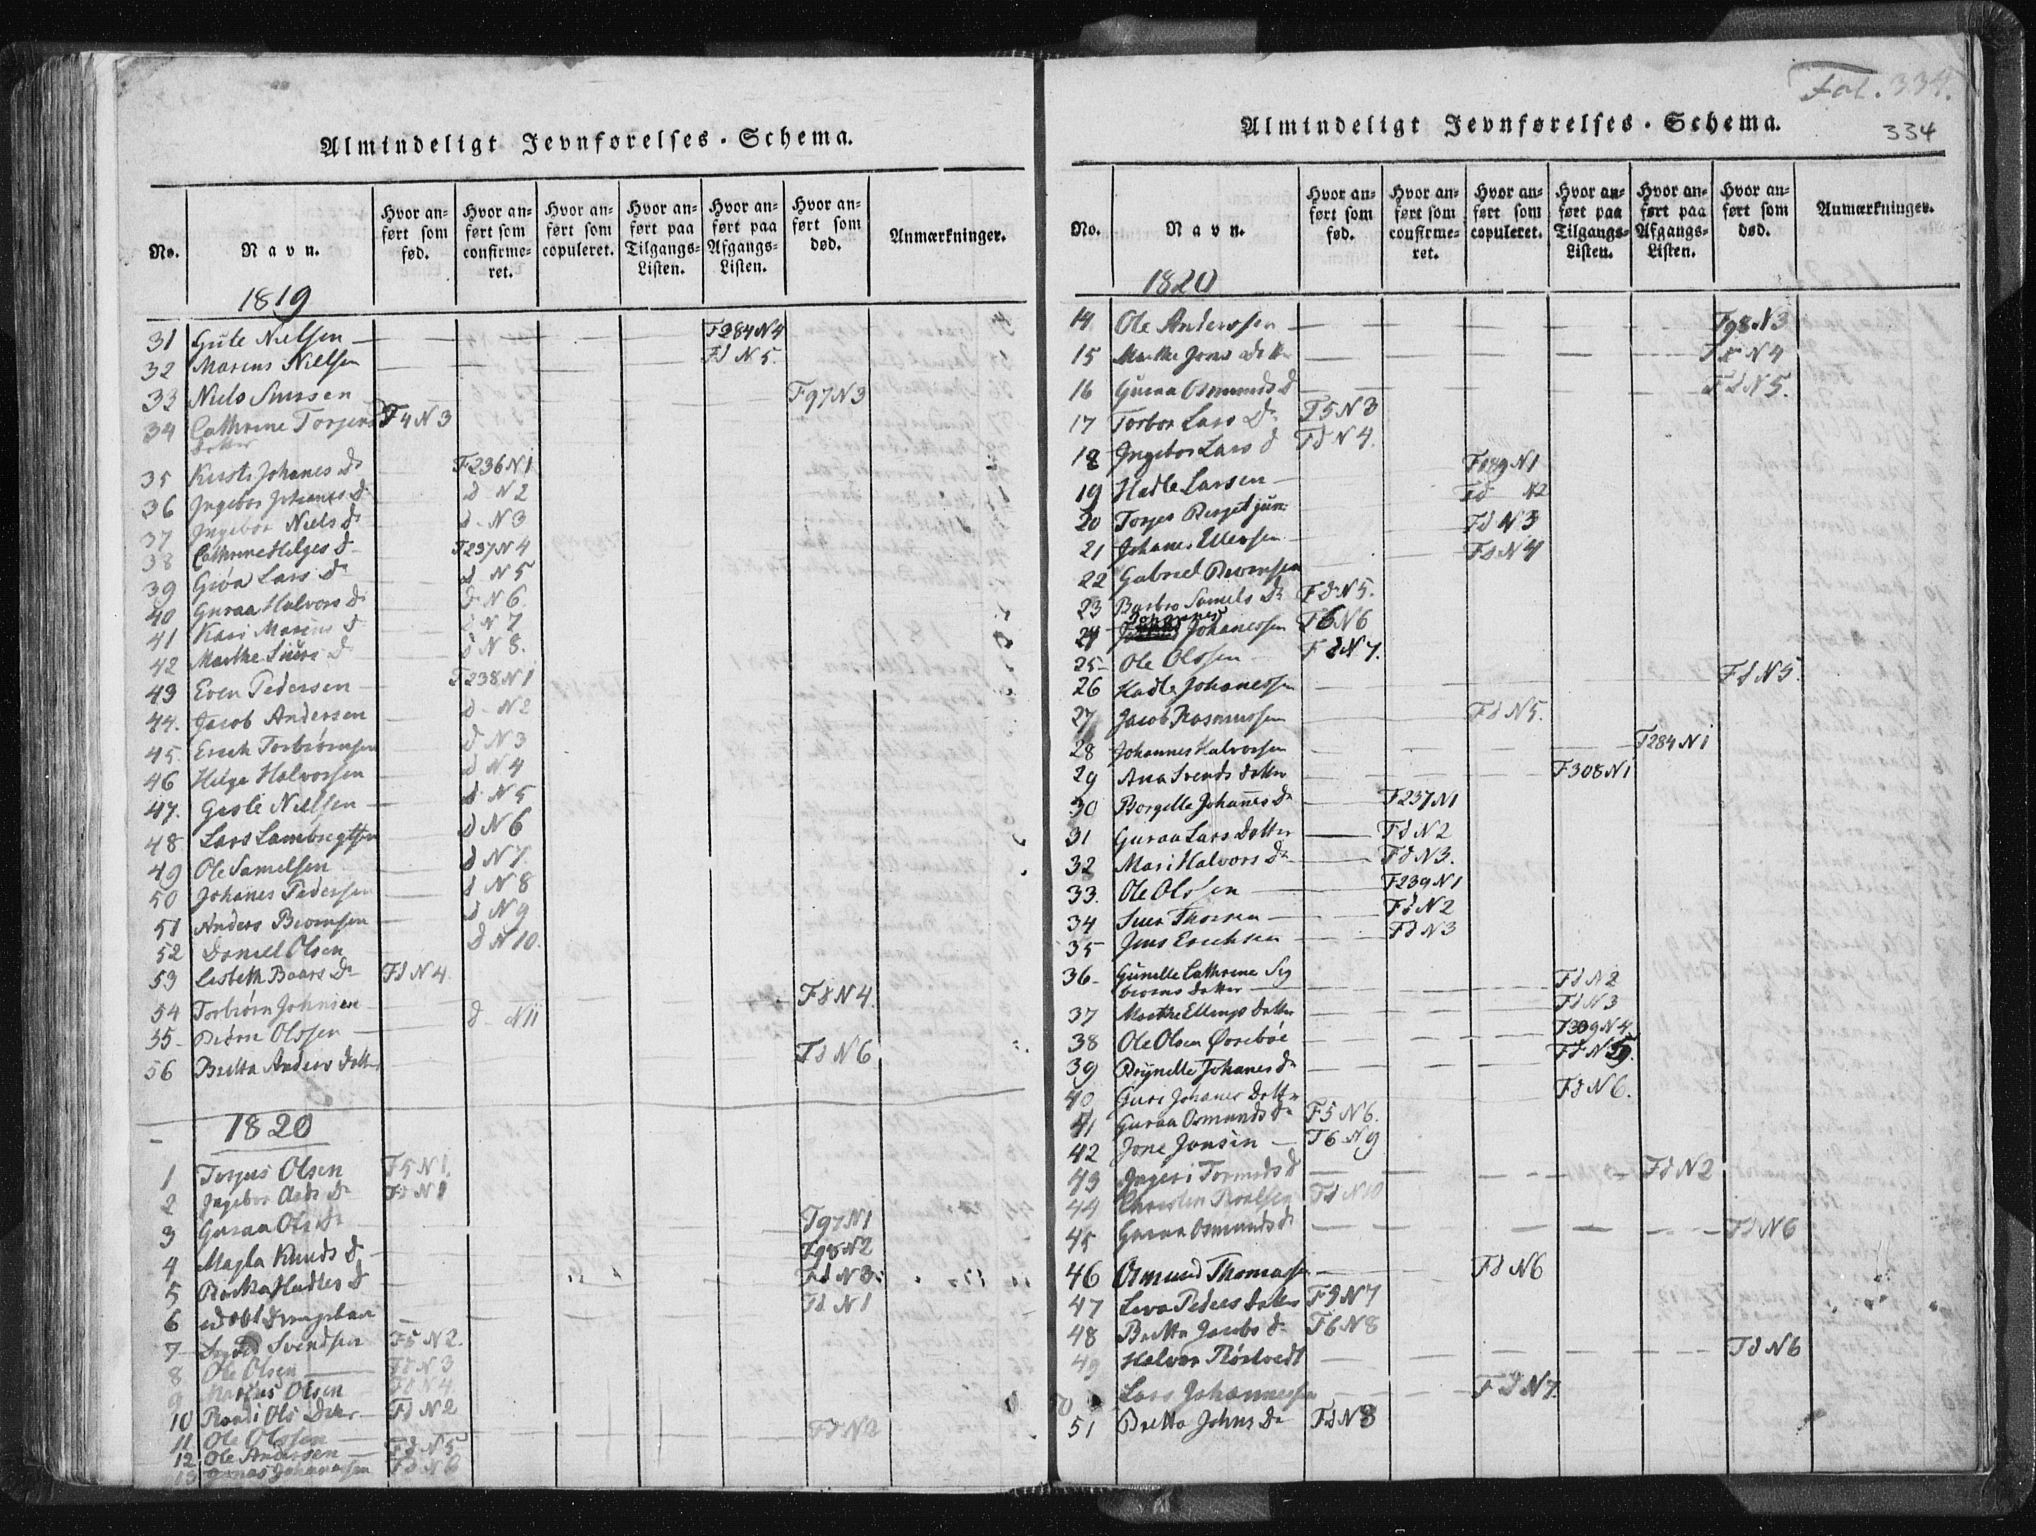 Almindeligt Jevnførelses-Schema.
No.
Navn.
Hvor anført som fød.
Hvor anført som confirmeret.
Hvor anført som copuleret.
Hvor anført paa Tilgangs-Listen.
Hvor anført paa Afgangs-Listen.
Hvor anført som død.
Anmærkninger.
1819
31 Gule Nielsen — F284N4
32 Marcus Nielsen Fd N5.
33 Niels F97N3
34 Cathrine Torjers F4N3
datter
35 Kirsti Johanes Dr F236N1
36 Ingebor Johannes Dr d N2
37 Ingebor Niels Dr d N3
38 Cathrine Helges d F237N4
39 Lars Dr d N5
40 Guraa Halvors Dr d N6
41 Kari d N7
42 Marthe d N8.
43 Even Pedersen F238N1
44. Jacob Andersen d N2
45. Erich Torbiørnsen d N3
46 Helge Halvorsen d N4
47. Gisle Nielsen — d N5
48 Lars Lambregtsen d N6
49 Ole Samelsen d N7.
50 Johanes Pedersen d N8
51 Anders d N9
52 Daniel Olsen d N10.
53 Lisbeth Baars Dr Fd N4.
54 Torbiørn Johnsen Fd N4.
55 Biørn Olssen — d N11
56 Britta Anders Datt Fd N6
1820
1 Torjus Olsen F5N1.
2 Ingebor Dr Fd N1
3 Guraa Ols Dr F97N1
4 Magla Knuds d F98N2
5 Hadles d Fd N3.
6 udøbt Drengebarn Fd N1
7 Svendsen F5N2.
8 Ole Olsen — Fd N3
9 Marcus Olsen Fd N4
10 Randi Ols Dr Fd N2
11 Ole Olssen — Fd N2
12 Ole Andersen — Fd N5
13 Jonas Johanessen Fd N6
Fol. 334.
334
Almindeligt Jevnførelses-Schema.
No.
Navn.
Hvor anført som fød.
Hvor anført som confirmeret.
Hvor anført som copuleret.
Hvor anført paa Tilgangs-Listen.
Hvor anført paa Afgangs-Listen.
Hvor anført som død.
Anmærkninger.
1820
14 Ole Anderssen — F98N3
15 Marthe Jons Datter Fd N4
16 Guraa Osmunds D Fd N5.
17 Torbor Lars Dr F5N3
18 Ingebor Lars d Fd N4.
19 Hadle Larsen — F189N1
20 Torjes Berget jun: Fd N2
21 Johanes Ellevsen Fd N3
22 Gabriel Fd N4
23 Barbro Samels Dr Fd N5.
24 Johannes Johanessen F6N6
25 Ole Olssen — Fd N7.
26 Hadle Johanessen Fd N5.
27 Jacob Rasmussen Fd N5.
28 Johannes Halvorssen F284N1
29 Ana Svends datter F308N1
30 Borgille Johanes Dr F237N1
31 Guraa Lars Datter Fd N2
32 Mari Halvors Dr Fd N3.
33. Ole Olssen — F239N1
34 Fd N2
35 Jens Erichsen Fd N3
36. Gunille Cathrine Sig
biørns datter — Fd N2
37 Marthe Ellings datter Fd N3
38 Ole Olsen Ørebøe F309N4
39 Brynille Johanes dr Fd N5.
40 Guri Johanes Dotter Fd N6.
41 Guraa Osmunds Dr F5N6.
42 Jone Jonsen — F6N9
43 Ingeri d Fd N2
44 Fd N10
45 Guraa Osmunds d Fd N6
46 Osmund Thomassen Fd N6
47 Peders datter F5N7
48 Britta Jacobs d F6N8
49 Halvor Fd N6
50 Lars Johannessen Fd N7.
51 Britta Johns Dr Fd N8